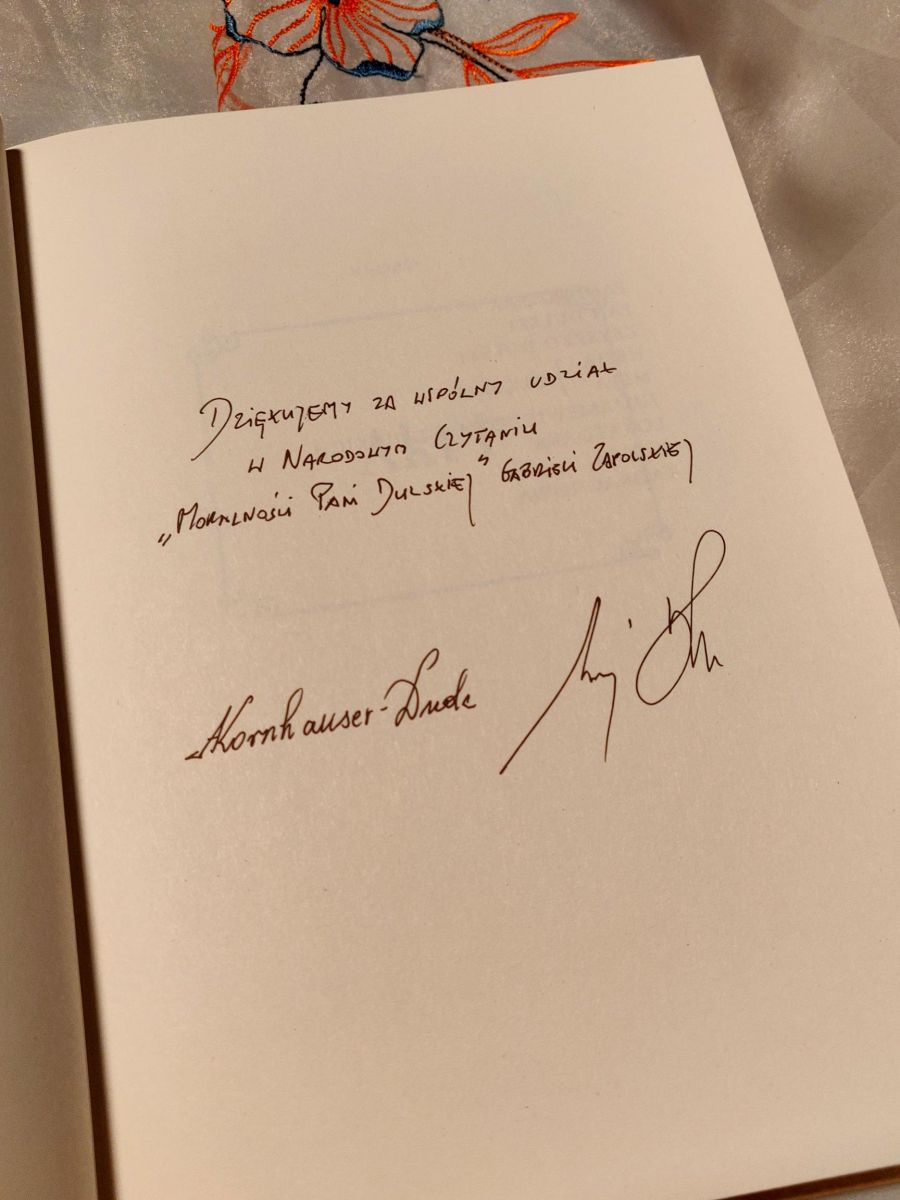 Dziękujemy za wspólny udział
w Narodowym Czytaniu
„Moralności Pani Dulskiej” Gabrieli Zapolskiej
AKornhauser-Duda